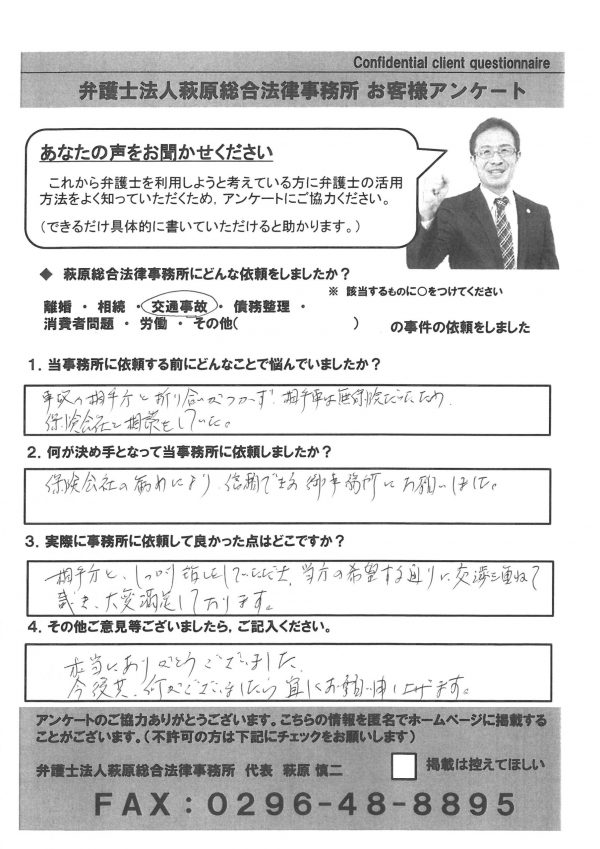 Confidential client questionnaire
弁護士法人萩原総合法律事務所 お客様アンケート
あなたの声をお聞かせください
これから弁護士を利用しようと考えている方に弁護士の活用
方法をよく知っていただくため，アンケートにご協力ください。
（できるだけ具体的に書いていただけると助かります。）
◆ 萩原総合法律事務所にどんな依頼をしましたか？
※ 該当するものに○をつけてください
離婚 ・ 相続 ・ 交通事故 ・ 債務整理 ・
消費者問題 ・ 労働 ・ その他（ ） の事件の依頼をしました
１．当事務所に依頼する前にどんなことで悩んでいましたか？
事故の相手方と折り合いがつかず、相手車は無保険だったため、
保険会社と相談をしていた。
２．何が決め手となって当事務所に依頼しましたか？
保険会社の薦めにより、信頼できる御事務所にお願いしました。
３．実際に事務所に依頼して良かった点はどこですか？
相手方と、しっかり話しをしていただき、当方の希望する通りに交渉を重ねて
戴き、大変満足しております。
４．その他ご意見等ございましたら，ご記入ください。
本当にありがとうございました。
今後共、何かございましたら宜しくお願い申し上げます。
アンケートのご協力ありがとうございます。こちらの情報を匿名でホームページに掲載する
ことがございます。（不許可の方は下記にチェックをお願いします）
弁護士法人萩原総合法律事務所 代表 萩原 慎二 掲載は控えてほしい
ＦＡＸ：０２９６－４８－８８９５